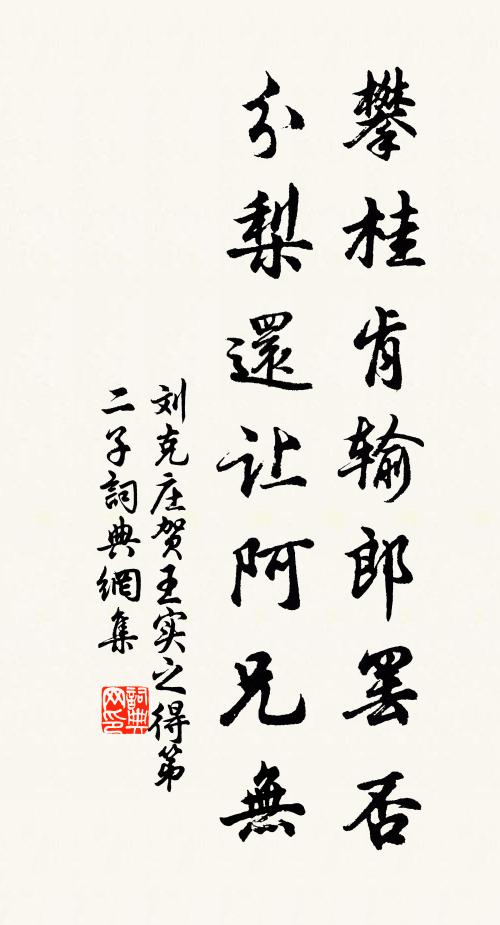 攀桂肯输郎罢否
分梨還让阿兄無
刘克庄贺王实之得第
二子詞典網集
詞典
网印